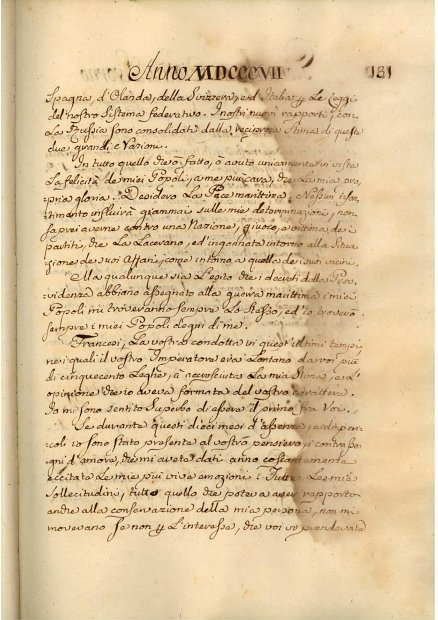 Anno MDCCCVII 151
Spagna, d'Olanda, della Svizzera, e d'Italia, y Le Leggi
del nostro Sistema federativo. I nostri nuovi rapporti, con
La Prussia sono consolidati dalla reciproca stima di queste
due grandi Nazioni.
In tutto quello che ò fatto, ò avuto unicamente in vista
La felicità de miei Popoli, a me più cara, che La mia pro,
pria gloria. Desidero La Pace marittima. Nessun risen,
timento influirà giammai sulle mie determinazioni, non
saprei averne contro una Nazione, giuoco, e vittima de i
partiti, che La Lacerano, ed ingannata intorno alla Situa,
zione de suoi Affari, come intorno a quella de suoi vicini.
Ma qualunque sia L'esito che i decreti della Prov,
videnza abbiano assegnato alla guerra marittima i miei
Popoli mi troveranno sempre Lo Stesso, ed io troverò
sempre i miei Popoli degni di me.
Francesi, La vostra condotta in quest'ultimi tempi,
ne i quali il vostro Imperatore era Lontano da voi più
di cinquecento Leghe, à accresciuta La mia Stima, e L'
opinione che io aveva formata del vostro carattere.
Io mi sono sentito Superbo di essere il primo fra Voi.
Se durante questi dieci mesi d'assenza, e di peri,
coli io sono stato presente al vostro pensiero, i contrasse,
gni d'amore, che mi avete dati anno costantemente
eccitate Le mie più vive emozioni: Tutte Le mie
sollecitudini, tutto quello che poteva aver rapporto
anche alla conservazione della mia persona, non mi
movevano se non y L'interesse, che voi vi prendevate